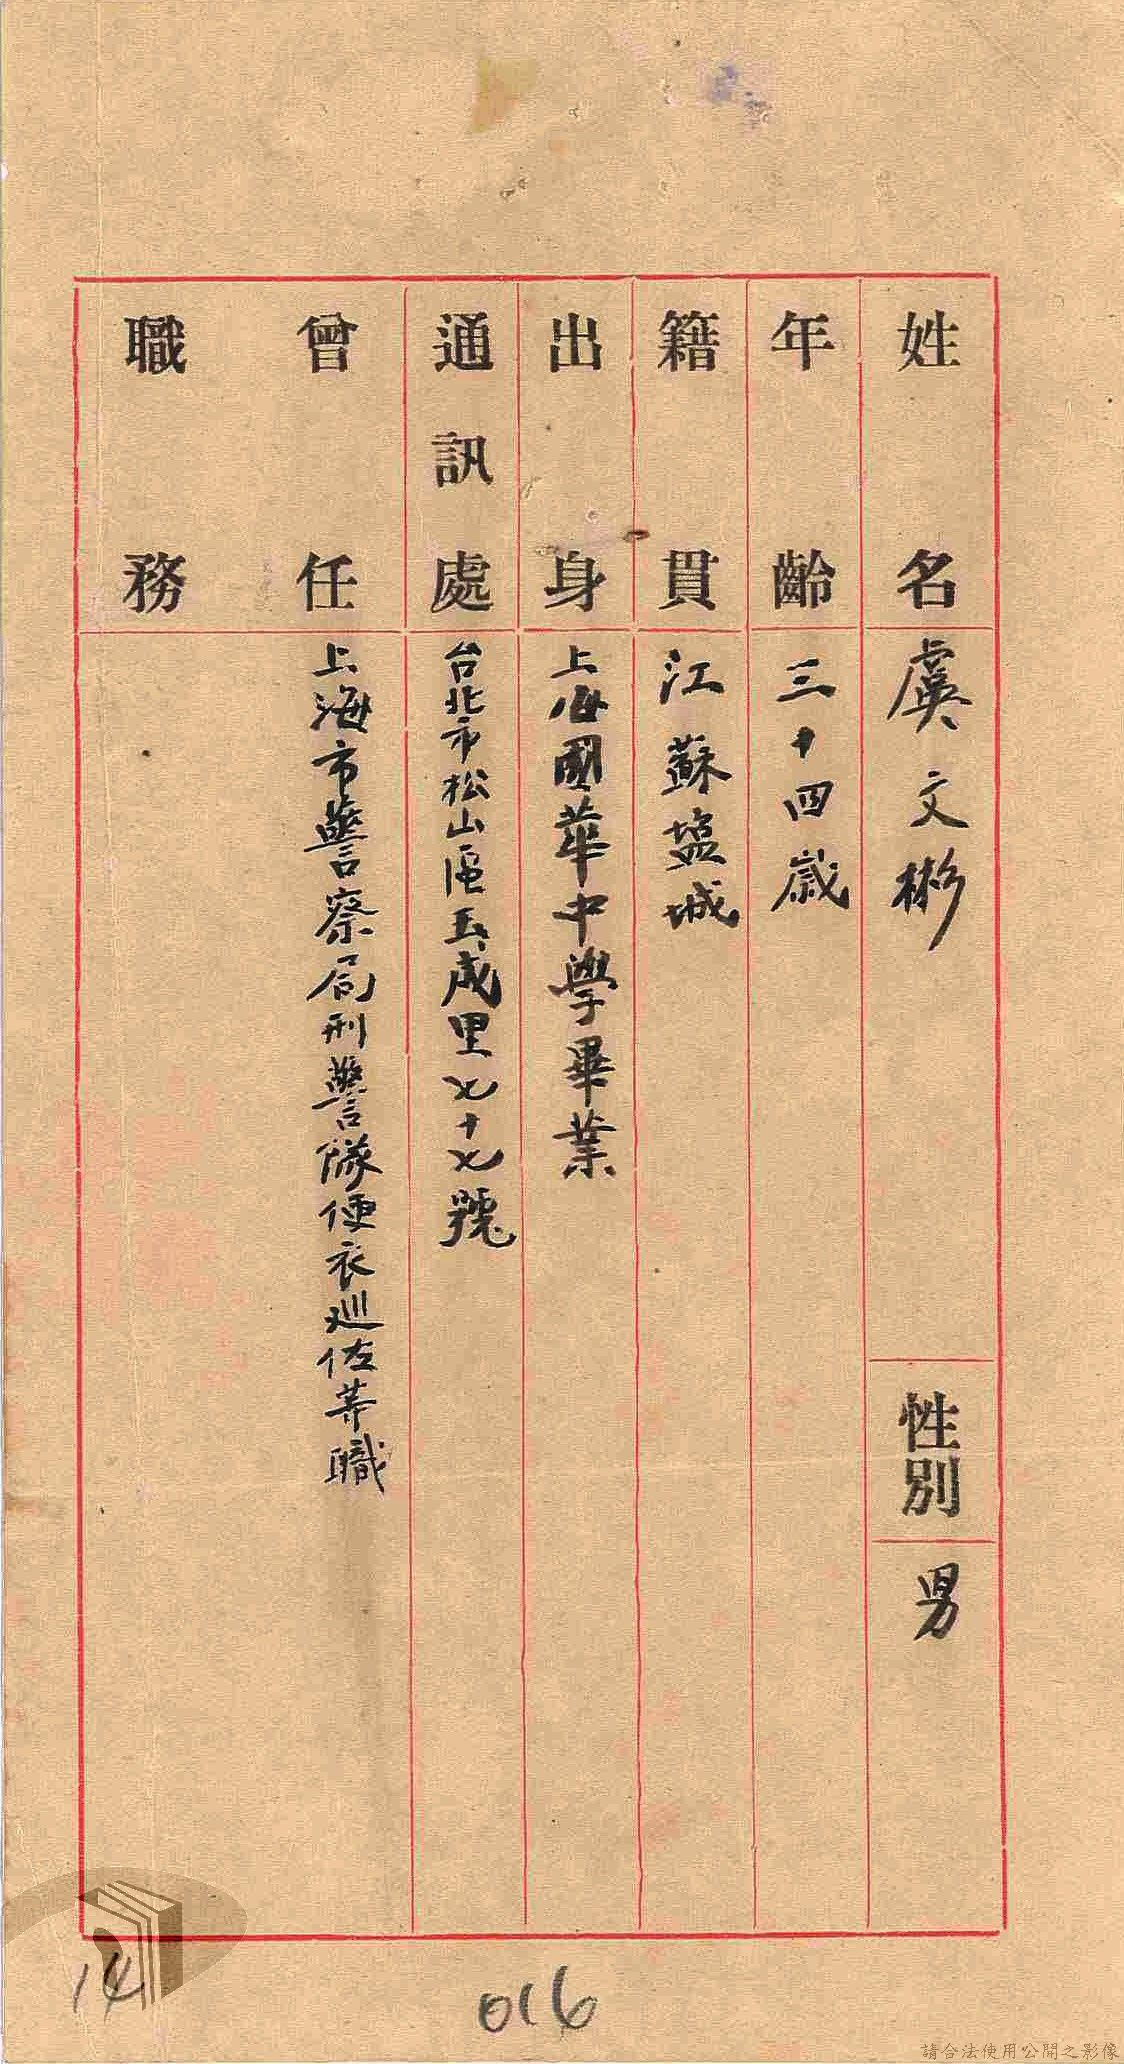 姓名 虞文彬
性別 男
年齡 三十四歲
籍貫 江蘇塩城
出身 上海國華中學畢業
通訊處 台北市松山區五成里七十七號
曾任職務 上海市警察局刑警隊便衣巡佐等職
14
016
請合法使用公開之影像